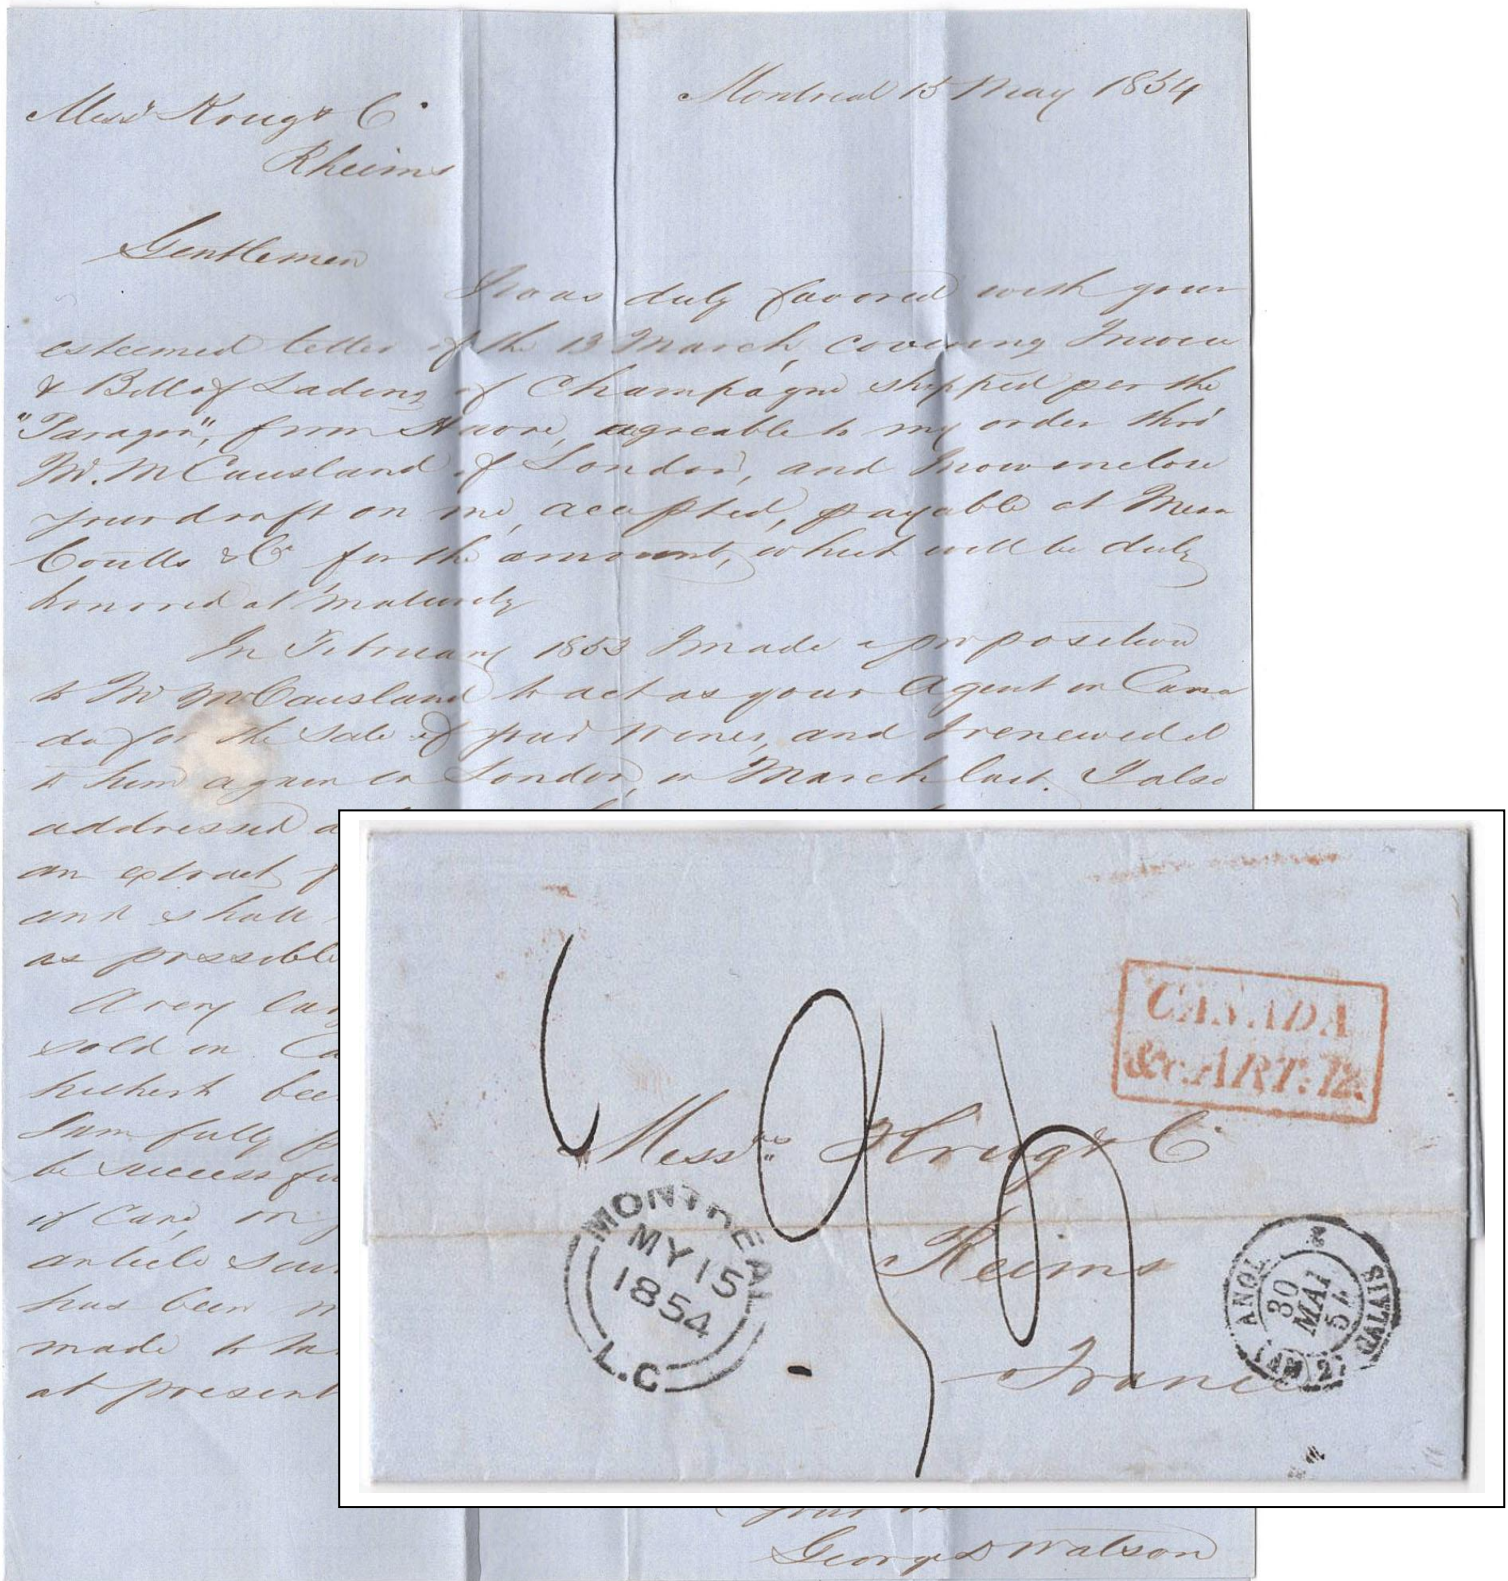 Montreal 15 May 1854
Mess.rs Krug & Co
Rheims
Gentlemen
I was duly favored with your
esteemed letter of the 13 March, covering Invoice
& Bill of Lading of Champagne shipped per the
"Paragon", from Havre, agreable to my order thro'
Mr. McCausland of London, and I now enclose
your draft on me, accepted, payable at Mess
Coutts & Co for the amount, which will be duly
honored at maturity
In February 1853 I made a proposition
to Mr McCausland to act as your Agent in Cana
da for the Sale of your Wines, and I renewed it
to him again in London, in March last. I also
addressed a
an extract
and shall
as possible
A very lar
sold in Ca
hitherto bee
I am fully p
be successfu
of Care, on
article
has been
made to
at present
George D Watson
CANADA
&c. ART: 12.
Mess.rs Krug & Co
Reims
France
MONTREAL
MY 15
1854
L.C
ANGL.
30
MAI
54
CALAIS
2